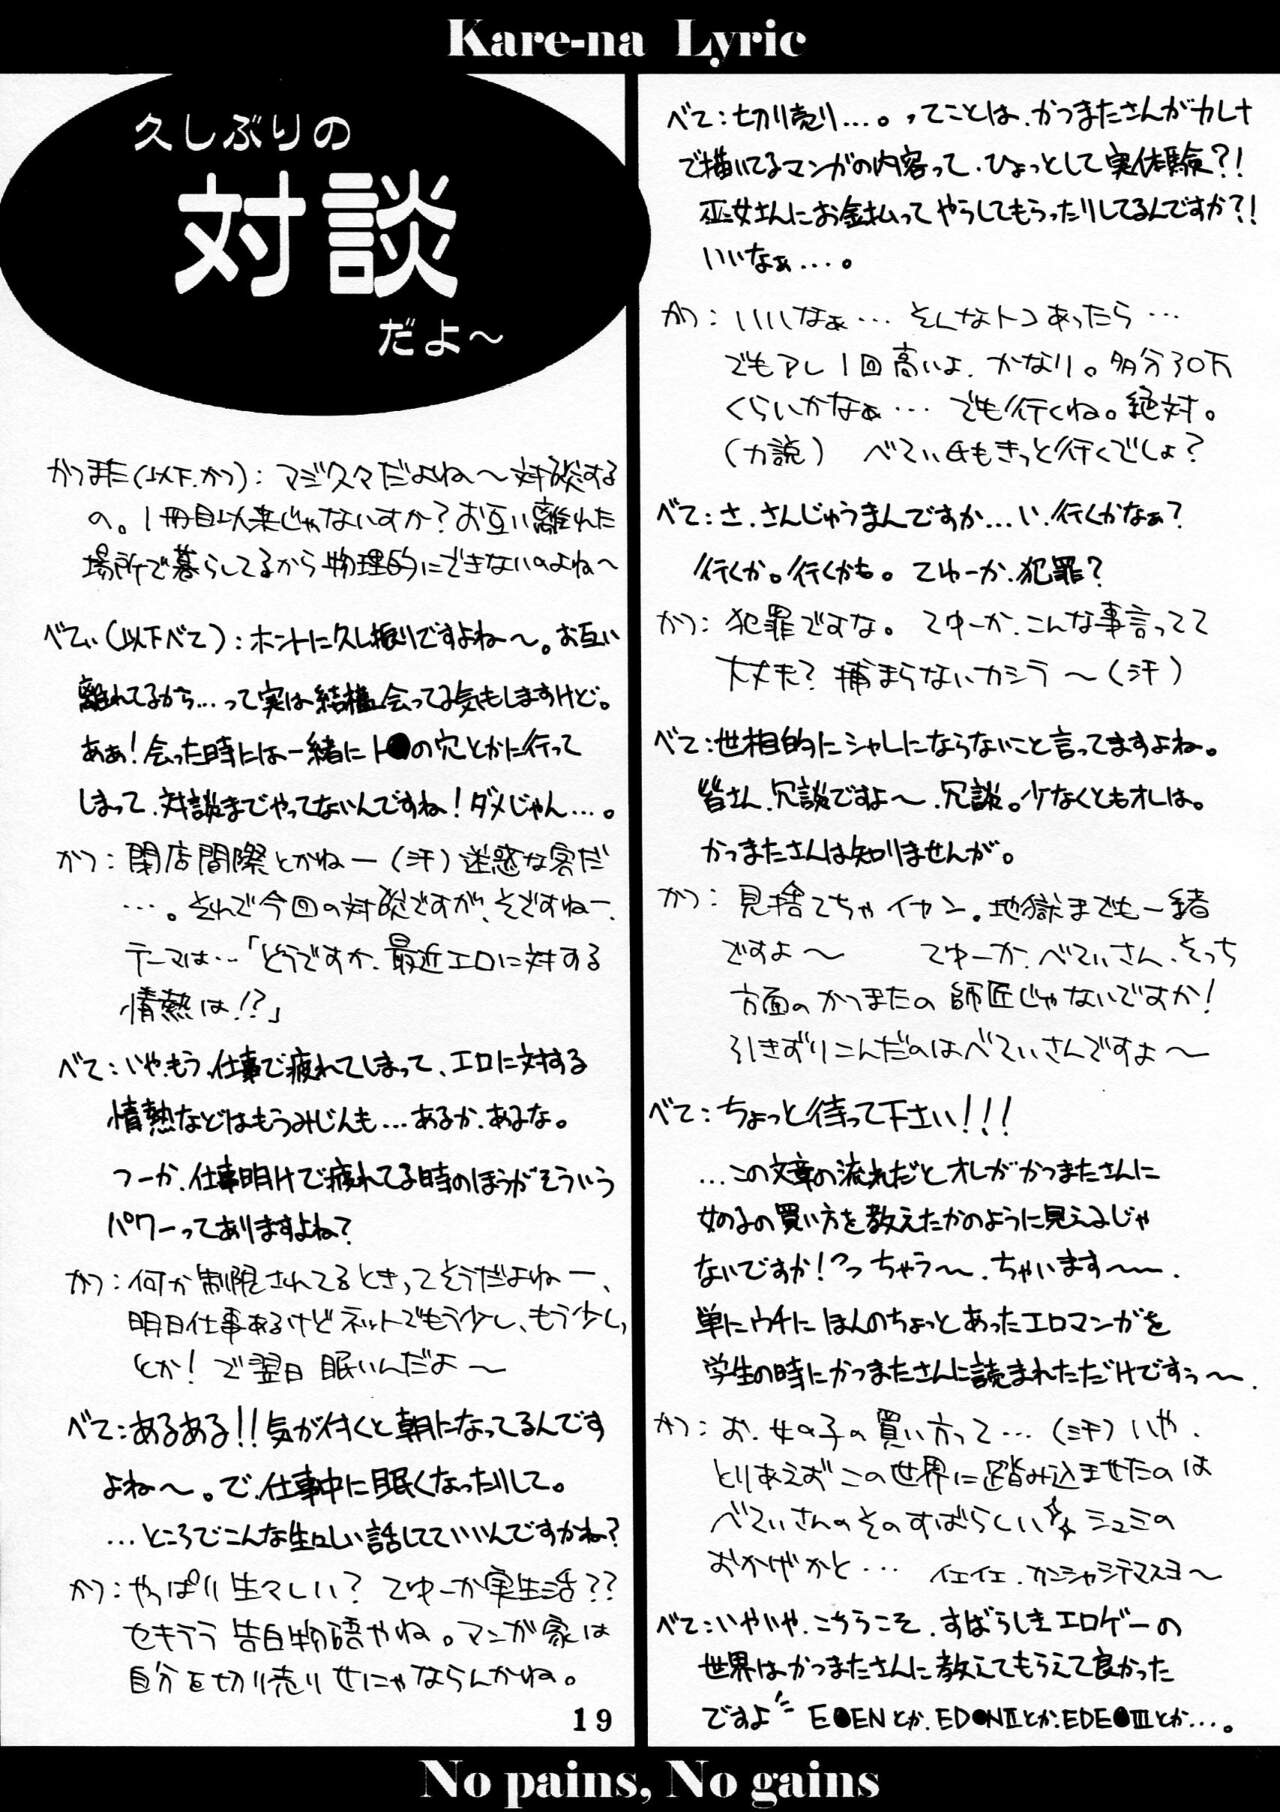 Kare-na Lyric
久しぶりの
対談
だよ～
かつまた(以下.かつ)：マジ久々だよね～対談する
の。1冊目以来じゃないすか？お互い離れた
場所で暮らしてるから物理的にできないのよね～
べてぃ(以下べて)：ホントに久し振りですよね～。お互い
離れてるから…って実は結構会ってる気もしますけど。
ああ！会った時には一緒にト●の穴とかに行って
しまって、対談までやってないんですね！ダメじゃん…。
かつ：閉店間際とかねー(汗)迷惑な客だ
…。それで今回の対談ですが、そですねー、
テーマは…「どうですか、最近エロに対する
情熱は!?」
べて：いやもう、仕事で疲れてしまって、エロに対する
情熱などはもうみじんも…あるか、あるな。
つーか、仕事明けで疲れてる時のほうがそういう
パワーってありますよね？
かつ：何か制限されてるときってそうだよねー、
明日仕事あるけどネットでもう少し、もう少し、
とか！で翌日 眠いんだよ～
べて：あるある!!気が付くと朝になってるんです
よね～。で、仕事中に眠くなったりして。
…ところでこんな生々しい話してていいんですかね？
かつ：やっぱり生々しい？てゆーか実生活??
セキララ告白物語やね。マンガ家は
自分を切り売りせにゃならんかね。
19
べて：切り売り…。ってことは、かつまたさんがカレナ
で描いてるマンガの内容って、ひょっとして実体験?!
巫女さんにお金払ってやらしてもらったりしてるんですか?!
いいなぁ…。
かつ：いいなぁ…そんなトコあったら…
でもアレ1回高いよ、かなり。多分30万
くらいかなぁ…でも行くね。絶対。
(力説) べてぃ氏もきっと行くでしょ？
べて：さ、さんじゅうまんですか…い、行くかなぁ？
行くか。行くかも。てゆーか、犯罪？
かつ：犯罪ですな。てゆーか、こんな事言ってて
大丈夫？捕まらないカシラ～(汗)
べて：世相的にシャレにならないこと言ってますよね。
皆さん、冗談ですよ～、冗談。少なくともオレは。
かつまたさんは知りませんが。
かつ：見捨てちゃイヤン。地獄までも一緒
ですよ～ てゆーか、べてぃさん、そっち
方面のかつまたの師匠じゃないですか！
引きずりこんだのはべてぃさんですよ～
べて：ちょっと待って下さい!!!
…この文章の流れだとオレがかつまたさんに
女の子の買い方を教えたかのように見えるじゃ
ないですか!?っちゃう～、ちゃいます～、
単にウチにほんのちょっとあったエロマンガを
学生の時にかつまたさんに読まれただけですぅ～、
かつ：お、女の子の買い方って…(汗)いや、
とりあえずこの世界に踏み込ませたのは
べてぃさんのそのすばらしい☆☆シュミの
おかげかと… イエイエ、カンシャシテマスヨ～
べて：いやいや、こちらこそ、すばらしきエロゲーの
世界はかつまたさんに教えてもらえて良かった
ですよ E●ENとか、ED●NⅡとか、EDE●Ⅲとか…。
No pains, No gains